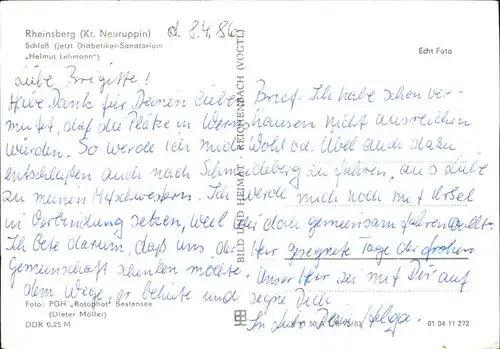 Rheinsberg (Kr. Neuruppin)
d. 8.4.86
Schloß (jetzt Diabetiker-Sanatorium
„Helmut Lehmann“)
Echt Foto
Liebe Brigitte!
Habe Dank für Deinen lieben Brief. Ich habe schon ver-
mutet, daß die Plätze in Wernshausen nicht ausreichen
würden. So werde ich mich wohl od. Übel auch dazu
entschließen auch nach Schmiedeberg zu fahren, aus Liebe
zu meinen Mitschwestern. Ich werde mich noch mit Ursel
in Verbindung setzen, weil wir doch gemeinsam fahren
Ich bete darum, daß uns der Herr gesegnete Tage der frohen
Gemeinschaft schenken möchte. Unser Herr sei mit Dir auf
dem Wege, er behüte und segne Dich
In Liebe Deine Helga.
Foto: PGH „Rotophot“ Bestensee
(Dieter Möller)
DDR 0,25 M
BILD UND HEIMAT · REICHENBACH (VOGTL)
01 04 11 272